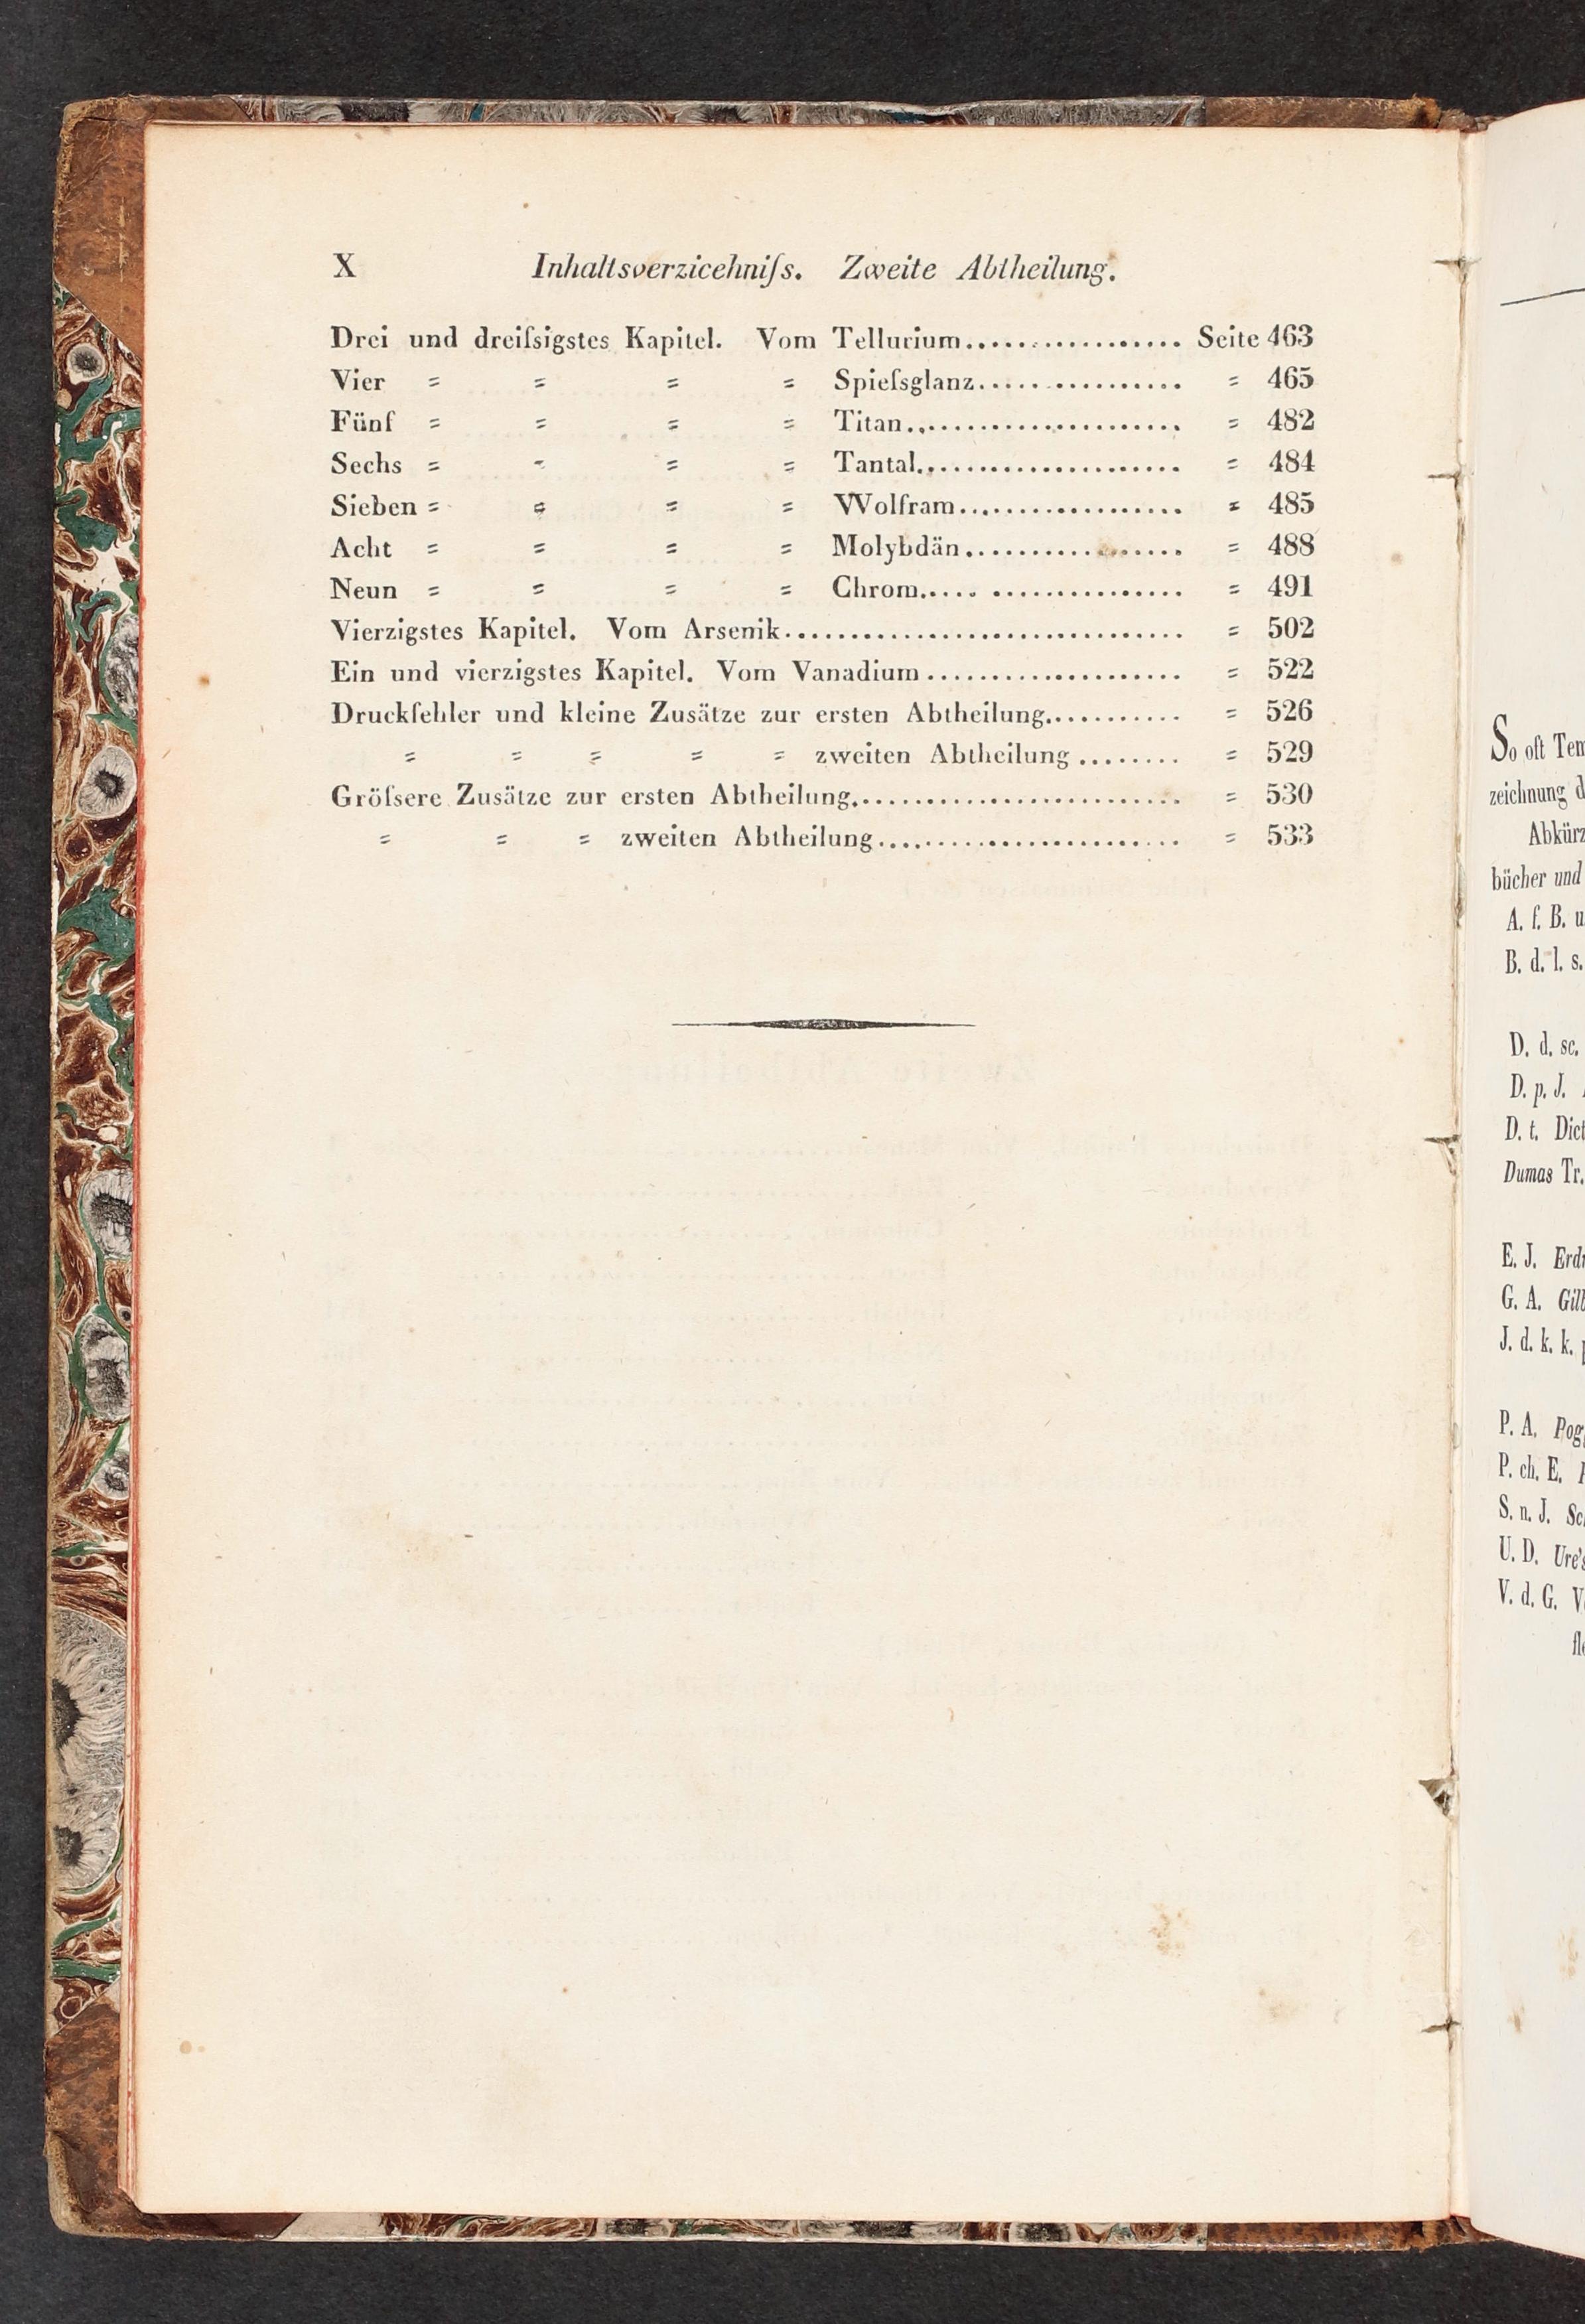 X Inhaltsverzicehniſs. Zweite Abtheilung.
Drei und dreiſsigstes Kapitel. Vom Tellurium.................. Seite 463
Vier = = = = Spieſsglanz................. = 465
Fünf = = = = Titan....................... = 482
Sechs = = = = Tantal...................... = 484
Sieben = = = = Wolfram................... = 485
Acht = = = = Molybdän.................. = 488
Neun = = = = Chrom..... ............... = 491
Vierzigstes Kapitel. Vom Arsenik.................................. = 502
Ein und vierzigstes Kapitel. Vom Vanadium.................... = 522
Druckfehler und kleine Zusätze zur ersten Abtheilung........... = 526
= = = = = zweiten Abtheilung........ = 529
Gröſsere Zusätze zur ersten Abtheilung........................... = 530
= = = zweiten Abtheilung......................... = 533
So oft
zeichnung
bücher und
A. f. B.
B. d. l. s.
D. d. sc.
D. p. J.
D. t.
Dumas Tr.
E. J.
G. A.
J. d. k. k.
P. A.
P. ch. E.
S. n. J.
U. D. Ure's
V. d. G.